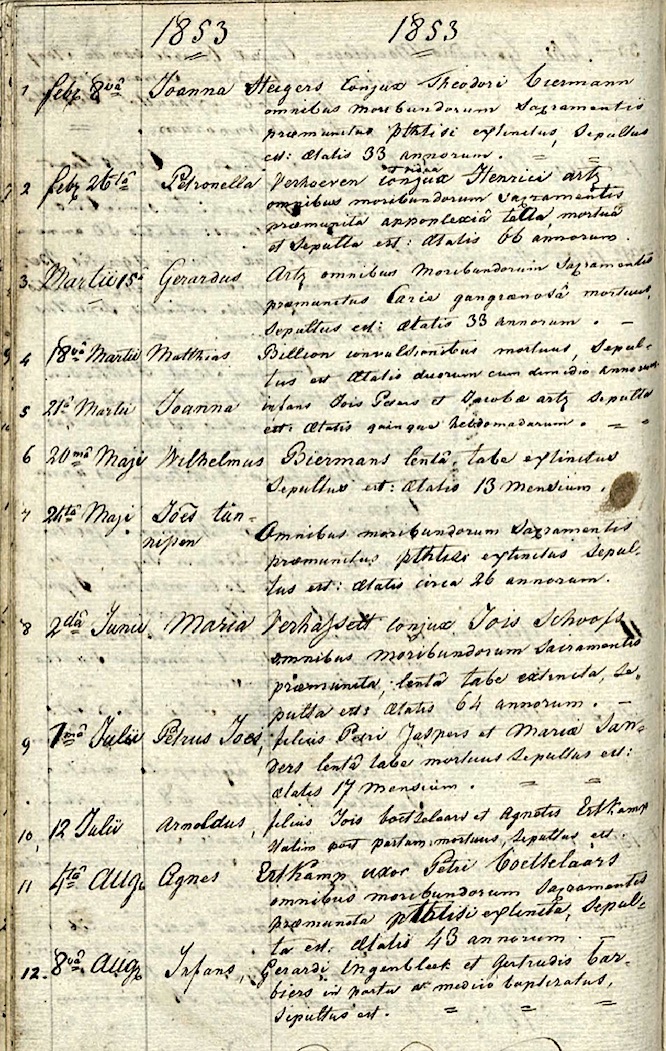 1853 1853
1 febr 8vâ Joanna Heegers conjux Theodori Biermann
omnibus moribundorum Sacramentis
præmunitus phthisi extinctus, Sepultus
est: ætatis 33 annorum.
2 febr 26tâ Petronella Verhoeven conjux Henrici artz
omnibus moribundorum Sacramentis
præmunita appoplexiâ tacta, mortua
et Sepulta est: ætatis 66 annorum.
3 Martii 15â Gerardus Artz omnibus moribundorum Sacramentis
præmunitus Carie gangrænosâ mortuus,
Sepultus est: ætatis 33 annorum.
4 18vâ Martii Matthias Billion convulsionibus mortuus, Sepul-
tus est ætatis duorum cum dimidio annorum
5 21â Martii Joanna infans Jois Peters et Jacobæ artz Sepulta
est: ætatis quinque hebdomadarum.
6 20mâ Maji Wilhelmus Biermans lentâ tabe extinctus
Sepultus est: ætatis 13 mensium.
7 24tâ Maji Joês
nissen omnibus moribundorum Sacramentis
præmunitus phthisi extinctus Sepul-
tus est: ætatis circa 26 annorum.
8 2dâ Junii Maria Verhasselt conjux Jois Schoofs
omnibus moribundorum Sacramentis
præmunita, lentâ tabe extincta, Se-
pulta est: ætatis 64 annorum.
9 1mâ Julii Petrus Joês, filius Petri Jaspers et Mariæ San-
ders lentâ tabe mortuus Sepultus est:
ætatis 17 mensium.
10, 12 Julii Arnoldus, filius Jois Coetselaars et Agnetis Ertkamp
Statim post partum mortuus, Sepultus est.
11 4tâ Aug Agnes Ertkamp uxor Petri Coetselaars
omnibus moribundorum Sacramentis
præmunita phthisi extincta, Sepul-
ta est. ætatis 43 annorum
12. 8vâ Aug Infans, Gerardi Ingenbleek et Gertrudis Bar-
biers in partu a medico baptizatus,
Sepultus est.